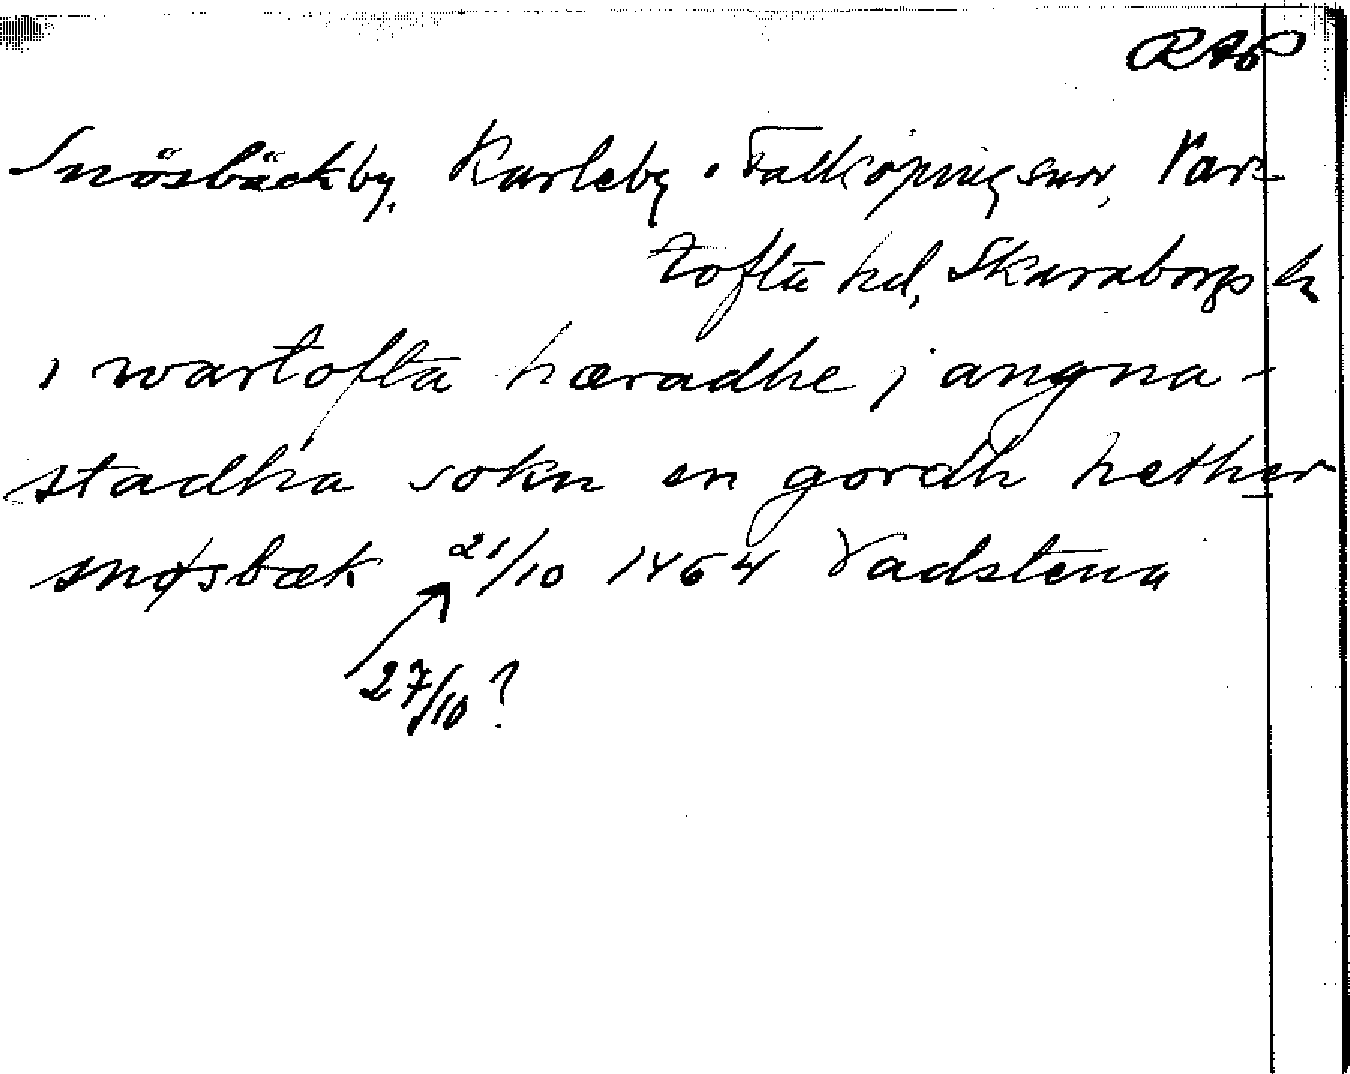 RAP
Snösbäckby, Karleby o Falköpings snr, Var-
tofta hd, Skaraborgs l
i wartofta hæradhe j angna-
stadha sokn en gordh hether
snøsbæk 21/10 1464 Vadstena
27/10?